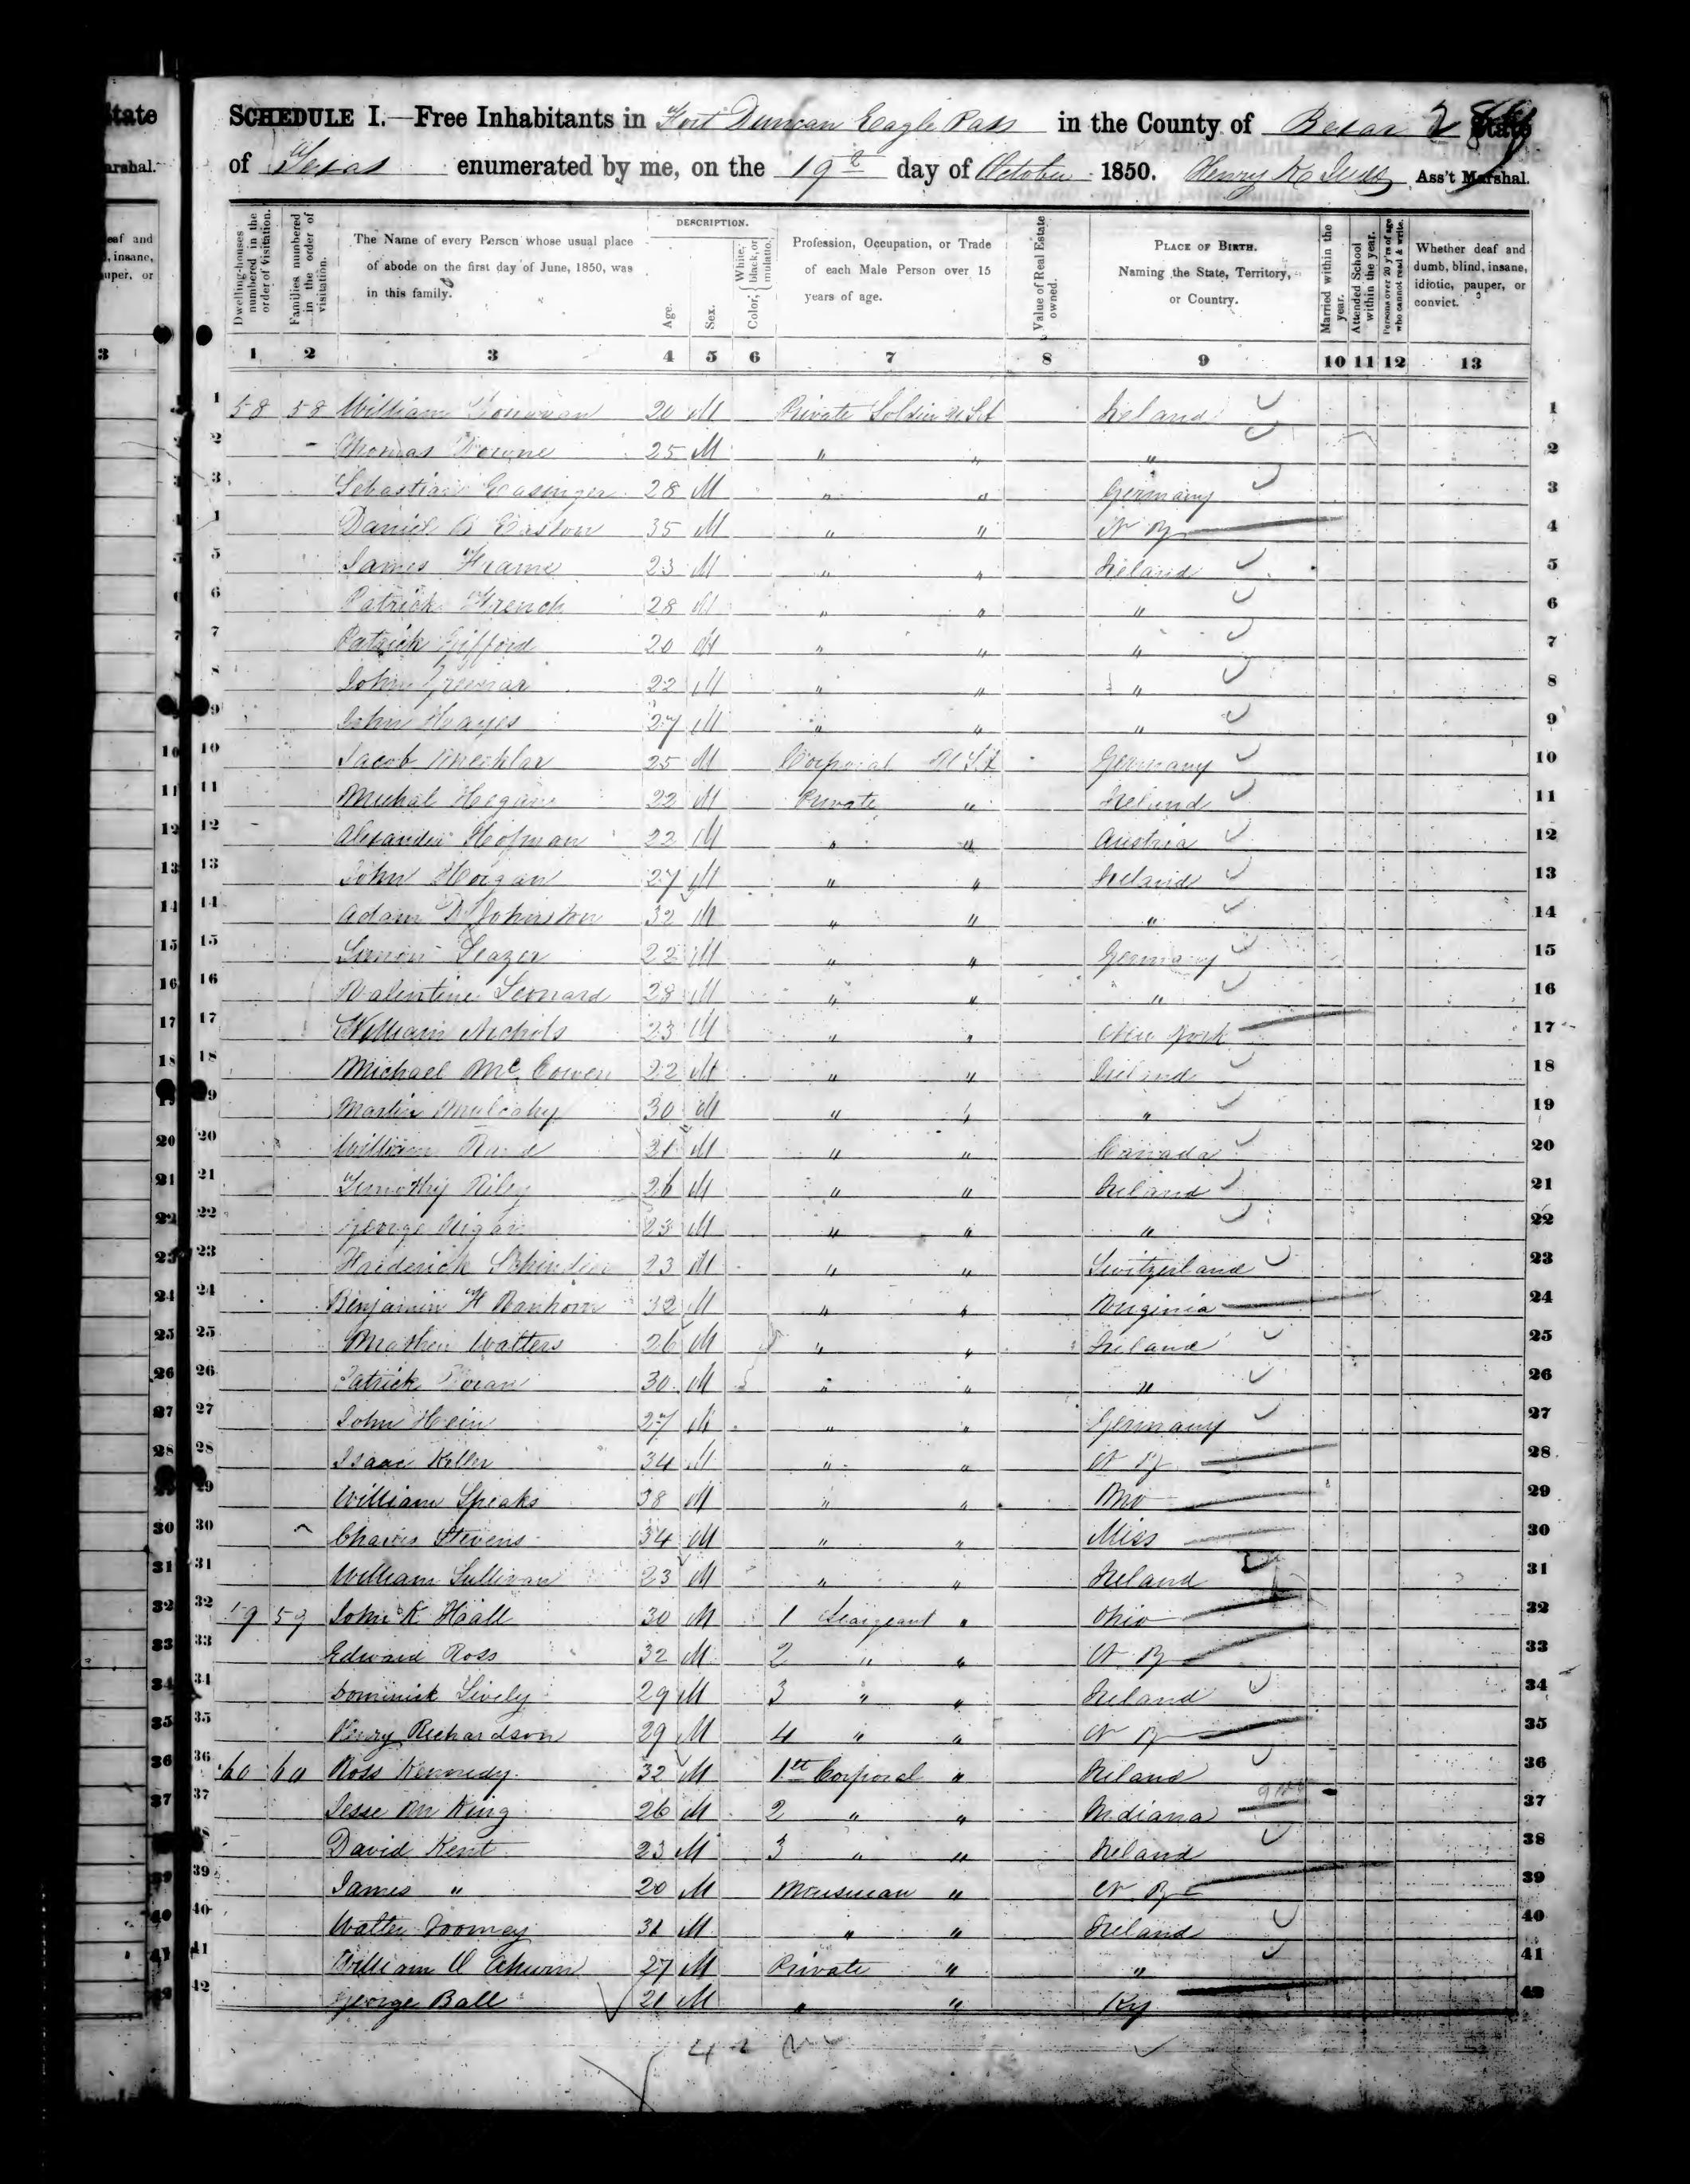 SCHEDULE I.—Free Inhabitants in Fort Duncan Eagle Pass in the County of Bexar State
of Texas enumerated by me, on the 19th day of October 1850. Henry K Ass't Marshal.
Dwelling-houses numbered in the order of visitation.
Families numbered in the order of visitation.
The Name of every Person whose usual place of abode on the first day of June, 1850, was in this family.
DESCRIPTION.
Age.
Sex.
Color, White, black, or mulatto.
Profession, Occupation, or Trade of each Male Person over 15 years of age.
Value of Real Estate owned.
PLACE OF BIRTH. Naming the State, Territory, or Country.
Married within the year.
Attended School within the year.
Persons over 20 y'rs of age who cannot read & write.
Whether deaf and dumb, blind, insane, idiotic, pauper, or convict.
1 2 3 4 5 6 7 8 9 10 11 12 13
1 58 58 William 20 M Private Soldier U.S.A Ireland 1
2 Thomas 25 M " " " 2
3 Sebastian 28 M " " Germany 3
Daniel B Easton 35 M " " N Y 4
5 James 23 M " " Ireland 5
6 Patrick French 28 M " " " 6
7 Patrick Gifford 20 M " " " 7
8 John 22 M " " " 8
9 John Hayes 27 M " " " 9
10 Jacob 25 M Corporal U S A Germany 10
11 Michal Hogan 22 M Private " Ireland 11
12 Alexander Hofman 22 M " " Austria 12
13 John Horgan 27 M " " Ireland 13
14 Adam D Johnston 32 M " " " 14
15 Simon 22 M " " Germany 15
16 Valentine Leonard 28 M " " " 16
17 William Nichols 23 M " " New York 17
18 Michael Mc Cowen 22 M " " Ireland 18
19 Martin Mulcahy 30 M " " " 19
20 William 31 M " " Canada 20
21 Timothy Riley 26 M " " Ireland 21
22 George 23 M " " " 22
23 Frederick 23 M " " Switzerland 23
24 Benjamin F Vanhorn 32 M " " Virginia 24
25 Mathew Watters 26 M " " Ireland 25
26 Patrick Doran 30 M " " " 26
27 John Hein 27 M " " Germany 27
28 Isaac Keller 34 M " " N Y 28
29 William Speaks 38 M " " Mo 29
30 Charles Stevens 34 M " " Miss 30
31 William Sullivan 23 M " " Ireland 31
32 59 59 John K Haall 30 M 1 Seargeant " Ohio 32
33 Edward Ross 32 M 2 " " N. Y 33
34 Dominick Lively 29 M 3 " " Ireland 34
35 Henry Richardson 29 M 4 " " N Y 35
36 60 60 Ross Kennedy 32 M 1st Corporal " Ireland 36
37 Jesse M King 26 M 2 " " Indiana 37
38 David Kent 23 M 3 " " Ireland 38
39 James " 20 M Musician " N. Y 39
40 Walter Toomey 31 M " " Ireland 40
41 William 27 M Private " " 41
42 George Ball 21 M " " Ky 42
42